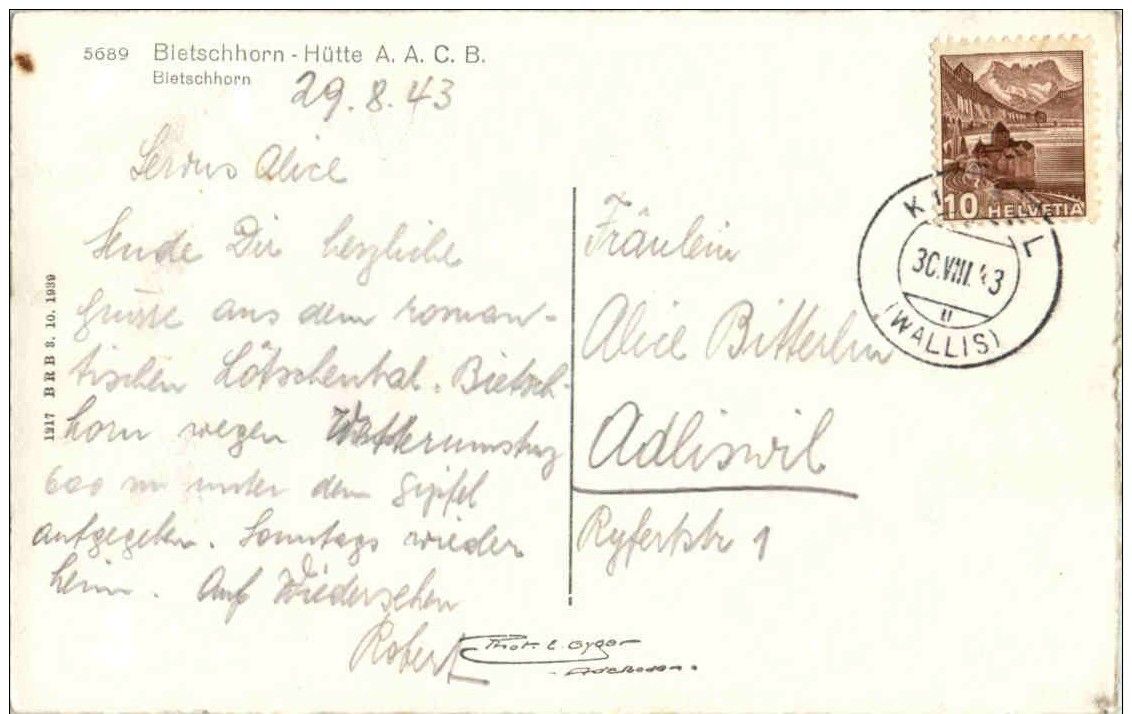 5689 Bietschhorn - Hütte A. A. C. B.
Bietschhorn
29.8.43
Servus Alice
Sende Dir herzliche
Grüsse aus dem roman-
tischen Lötschental. Bietsch-
horn wegen Wetterumsturz
600 m unter dem Gipfel
aufgegeben. Sonntags wieder
heim. Auf Wiedersehen
Robert
Phot. E. Gyger
Adelboden.
1217 BRB 3. 10. 1939
10 HELVETIA
30.VIII.43
(WALLIS)
Fräulein
Alice Bitterlin
Adliswil
1